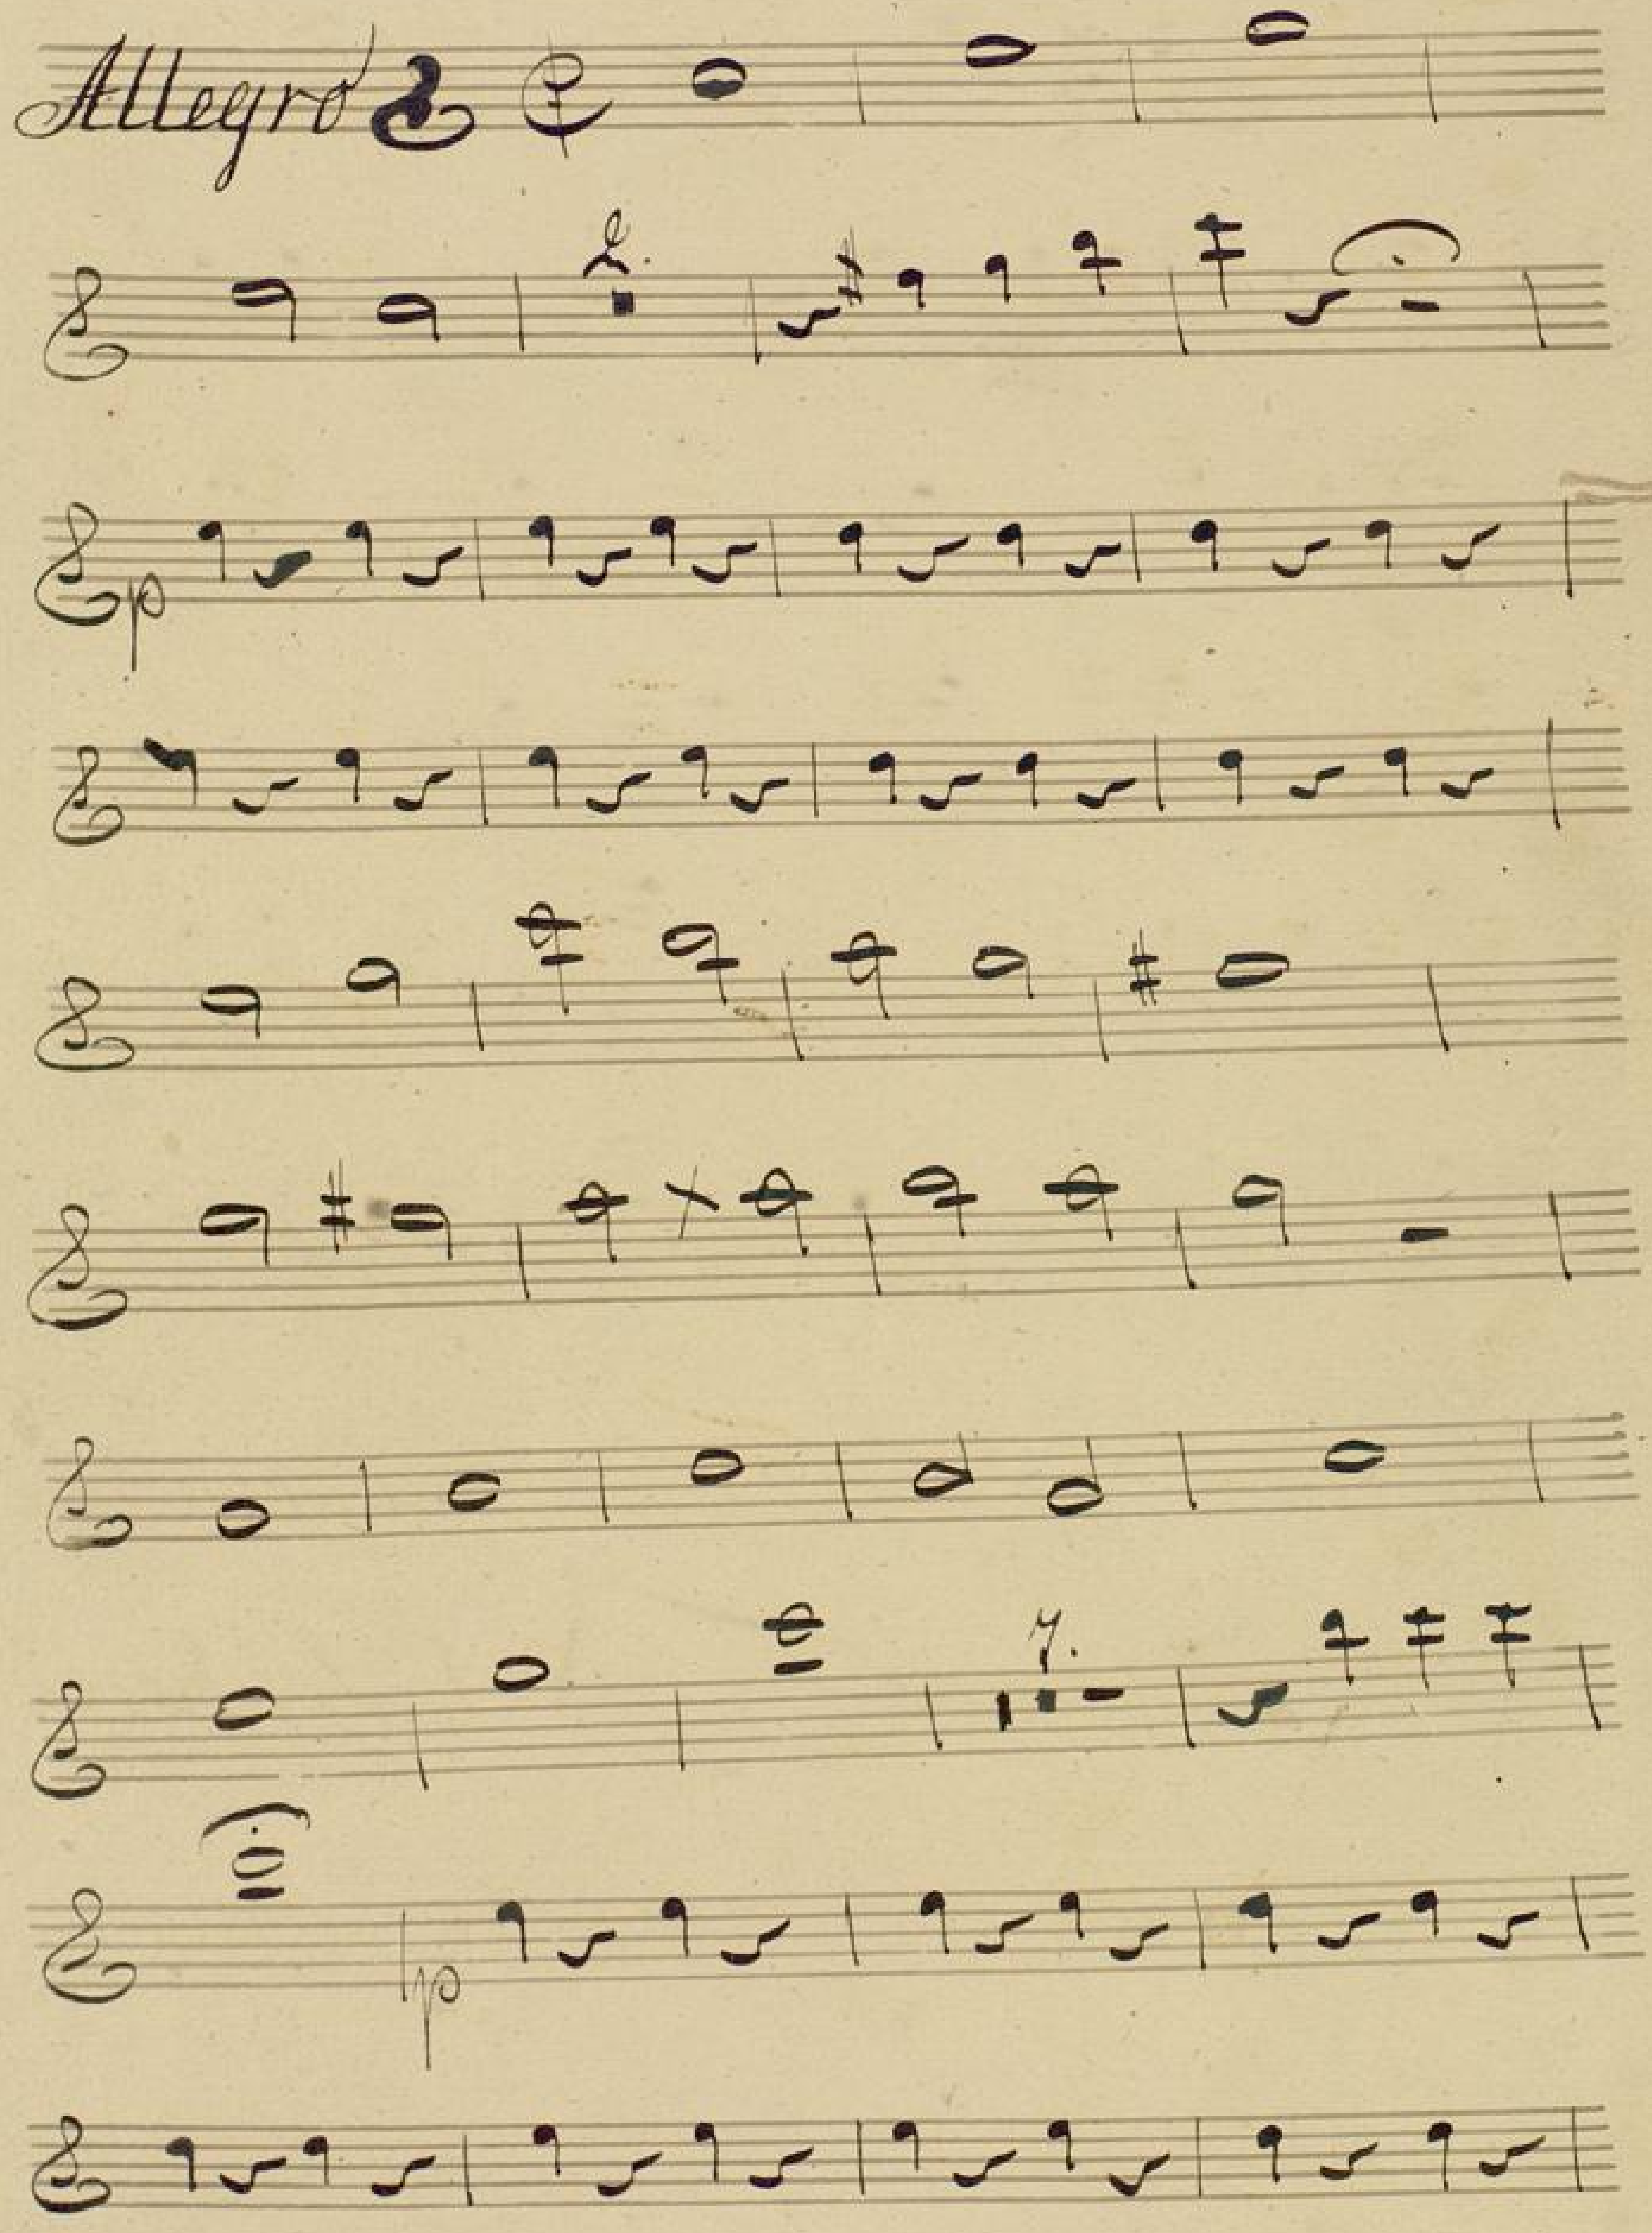 Allegro
2.
p
7.
p